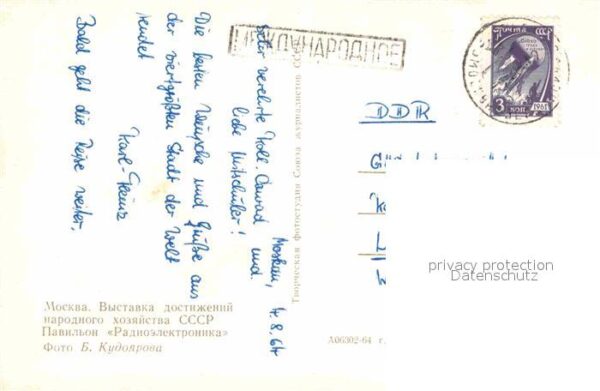 МЕЖДУНАРОДНОЕ
ПОЧТА
3
КОП
1961
Moskau,
4.8.64
Sehr verehrte Koll. Conrad und
liebe Mitschüler!
Die besten Wünsche und Grüße aus
der viertgrößten Stadt der Welt
sendet
Karl-Heinz
Bald geht die Reise weiter.
DDR
Творческая фотостудия Союза журналистов СССР
privacy protection
Datenschutz
Москва. Выставка достижений
народного хозяйства СССР
Павильон «Радиоэлектроника»
Фото Б. Кудоярова
А06302-64 г.